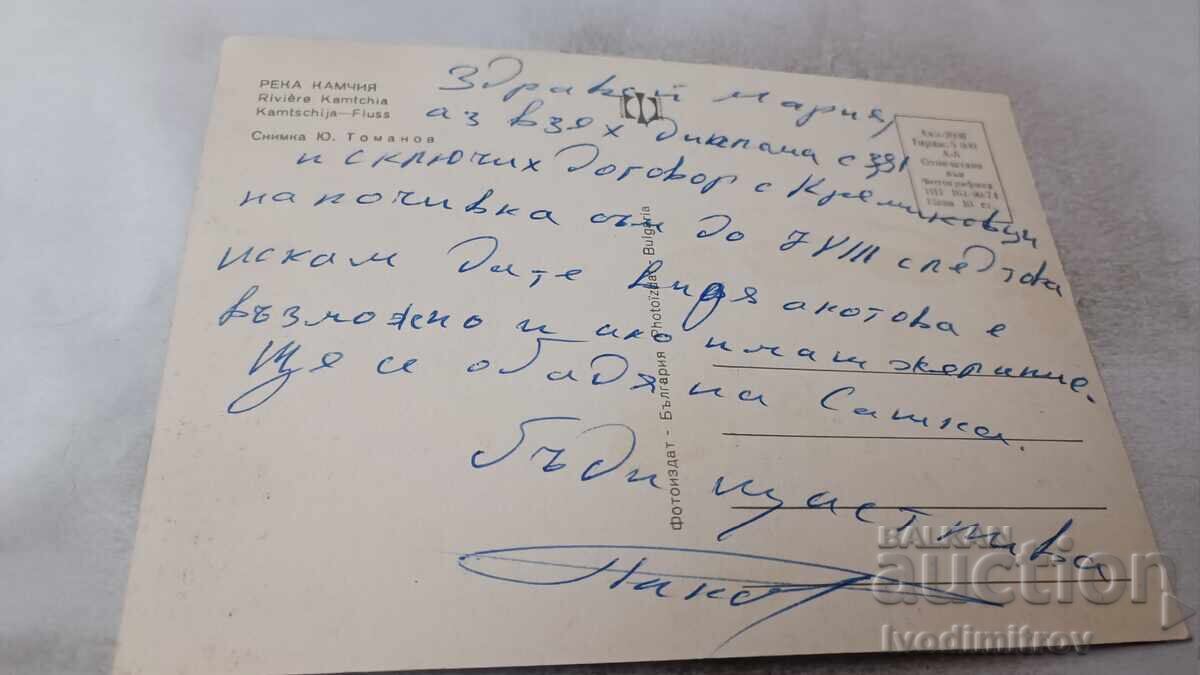 РЕКА КАМЧИЯ
Rivière Kamtchia
Kamtschija—Fluss
Снимка Ю. Томанов
Здравей Мария,
аз взех диплома с
и сключих договор с Кремиковци
на почивка съм до VIII след това
искам да те видя ако това е
възможно и ако имаш желание.
Ще се обадя на Сашка.
Бъди щастлива
фотоиздат - България Photoizdat Bulgaria
Тираж
Отпечатано
във
Фотографика
BALKAN
auction
Ivodimitrov